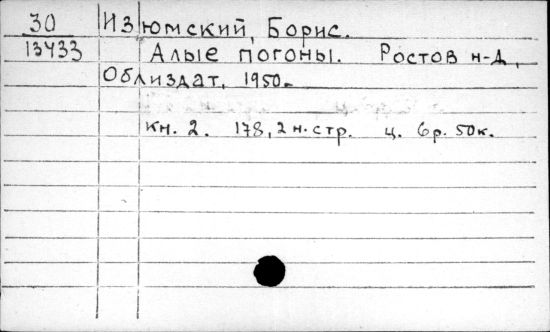 30 Изюмский, Борис.
13433 Алые погоны. Ростов н-Д,
Облиздат, 1950-
кн. 2. 178, 2 н. стр. ц. 6р. 50к.